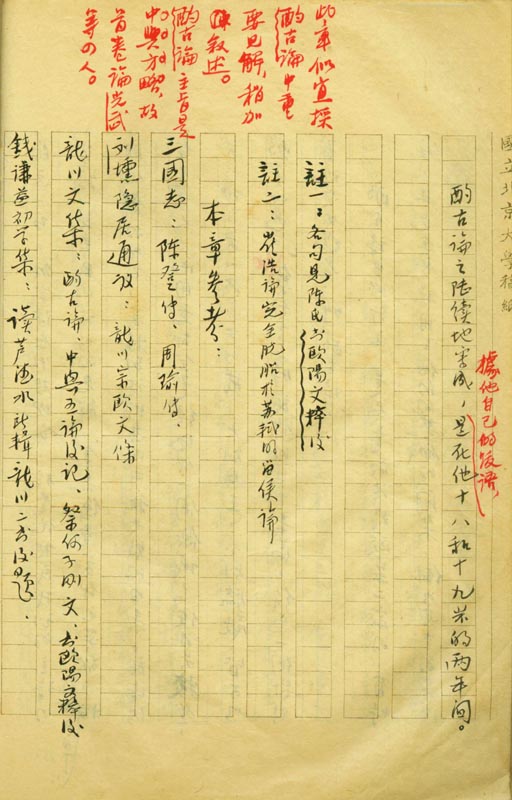 國立北京大學稿紙
酌古論之陸續地寫成，是在他十八和十九歲的兩年間。
據他自己的後語，
註一：各句見陳氏書歐陽文粹後
註二：崔浩論完全脫胎於蘇軾的留侯論
本章參考：
三國志：陳登傳、周瑜傳、
劉壎隱居通議：龍川宗歐文條
龍川文集：酌古論、中興五論後記、祭何子剛文、書歐陽文粹後
錢謙益初學集：讀盧德水所輯龍川二書後題、
此章似宜採
酌古論中重
要見解，稍加
敘述。
酌古論主旨是
中興方略，故
首卷論光武
等四人。